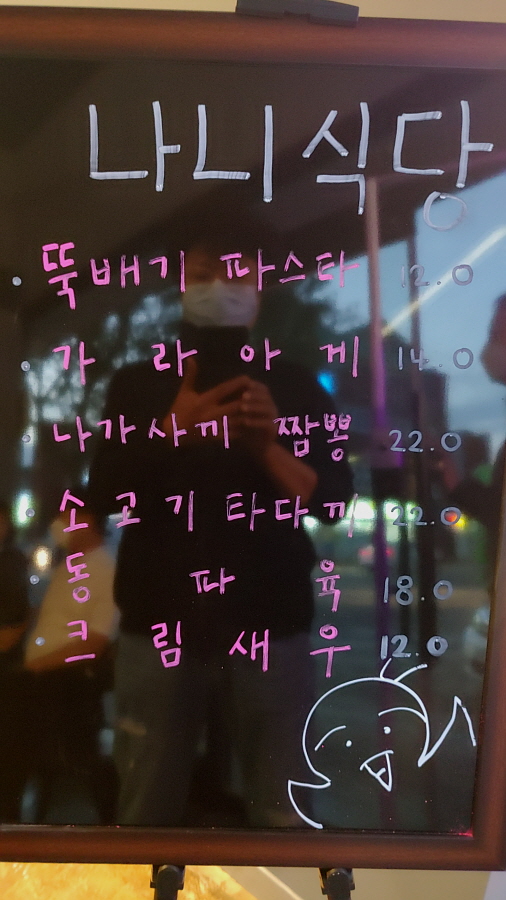 나니식당
뚝배기 파스타 12.0
가라아게 14.0
나가사끼 짬뽕 22.0
소고기타다끼 22.0
동파육 18.0
크림새우 12.0